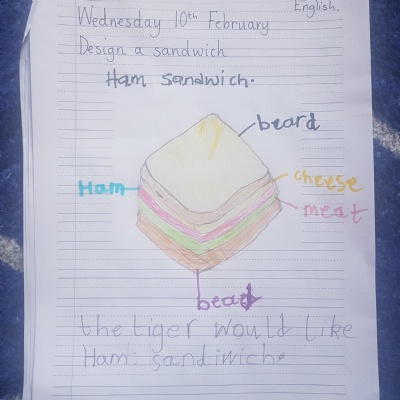 English.
Wednesday 10th February
Design a sandwich
Ham sandwich.
beard
Ham
cheese
meat
bead
the tiger would like
Ham sandiwich.